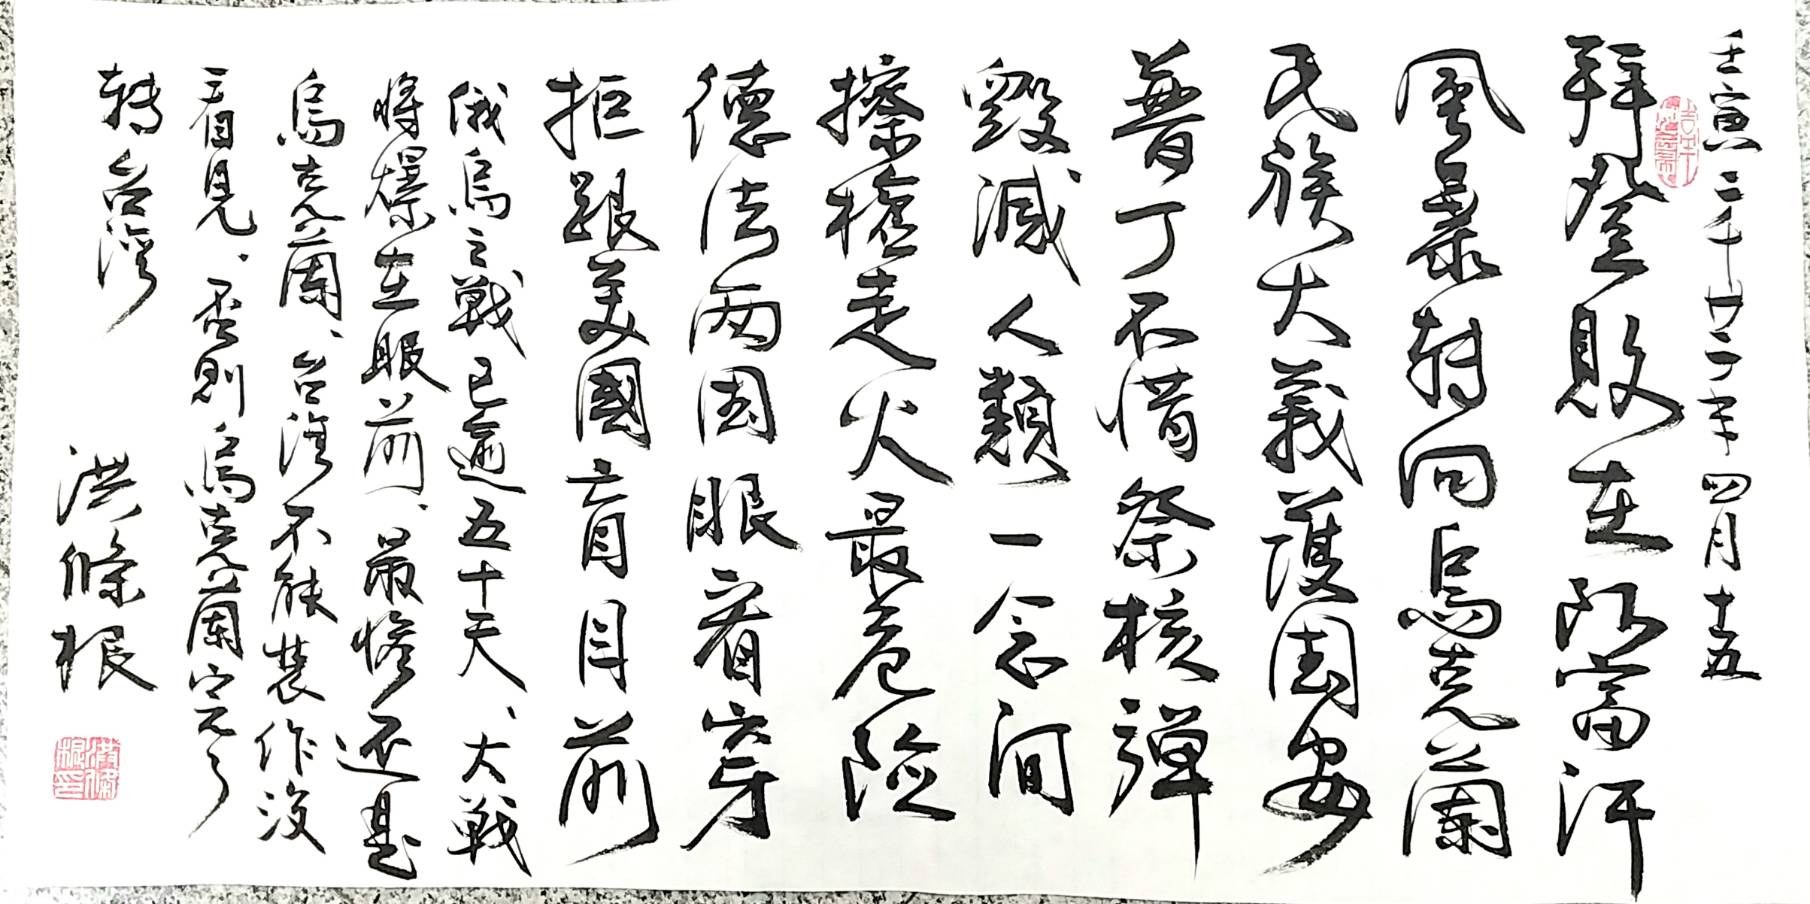 壬寅二千廿二年四月十五
拜登敗在阿富汗
風暴转向烏克蘭
民族大義護国安
普丁不惜祭核彈
毀滅人類一念间
擦槍走火最危险
德法两国眼看穿
拒跟美國盲目前
俄烏之戰已逾五十天、大戰
将爆在眼前、最惨还是
烏克蘭、台湾不能装作没
看見、否則烏克蘭完了
转台湾
洪條根
洪條根印